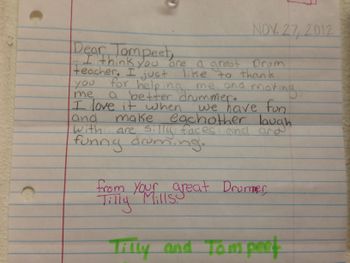 NOV. 27, 2012
Dear Tompeet,
I think you are a great Drom
teacher. I just like to thank
you for helping me and making
me a better drummer.
I love it when we have fun
and make eachother laugh
with are silly faces and are
funny druming.
from your great Drummer,
Tilly Mills
Tilly and Tompeet